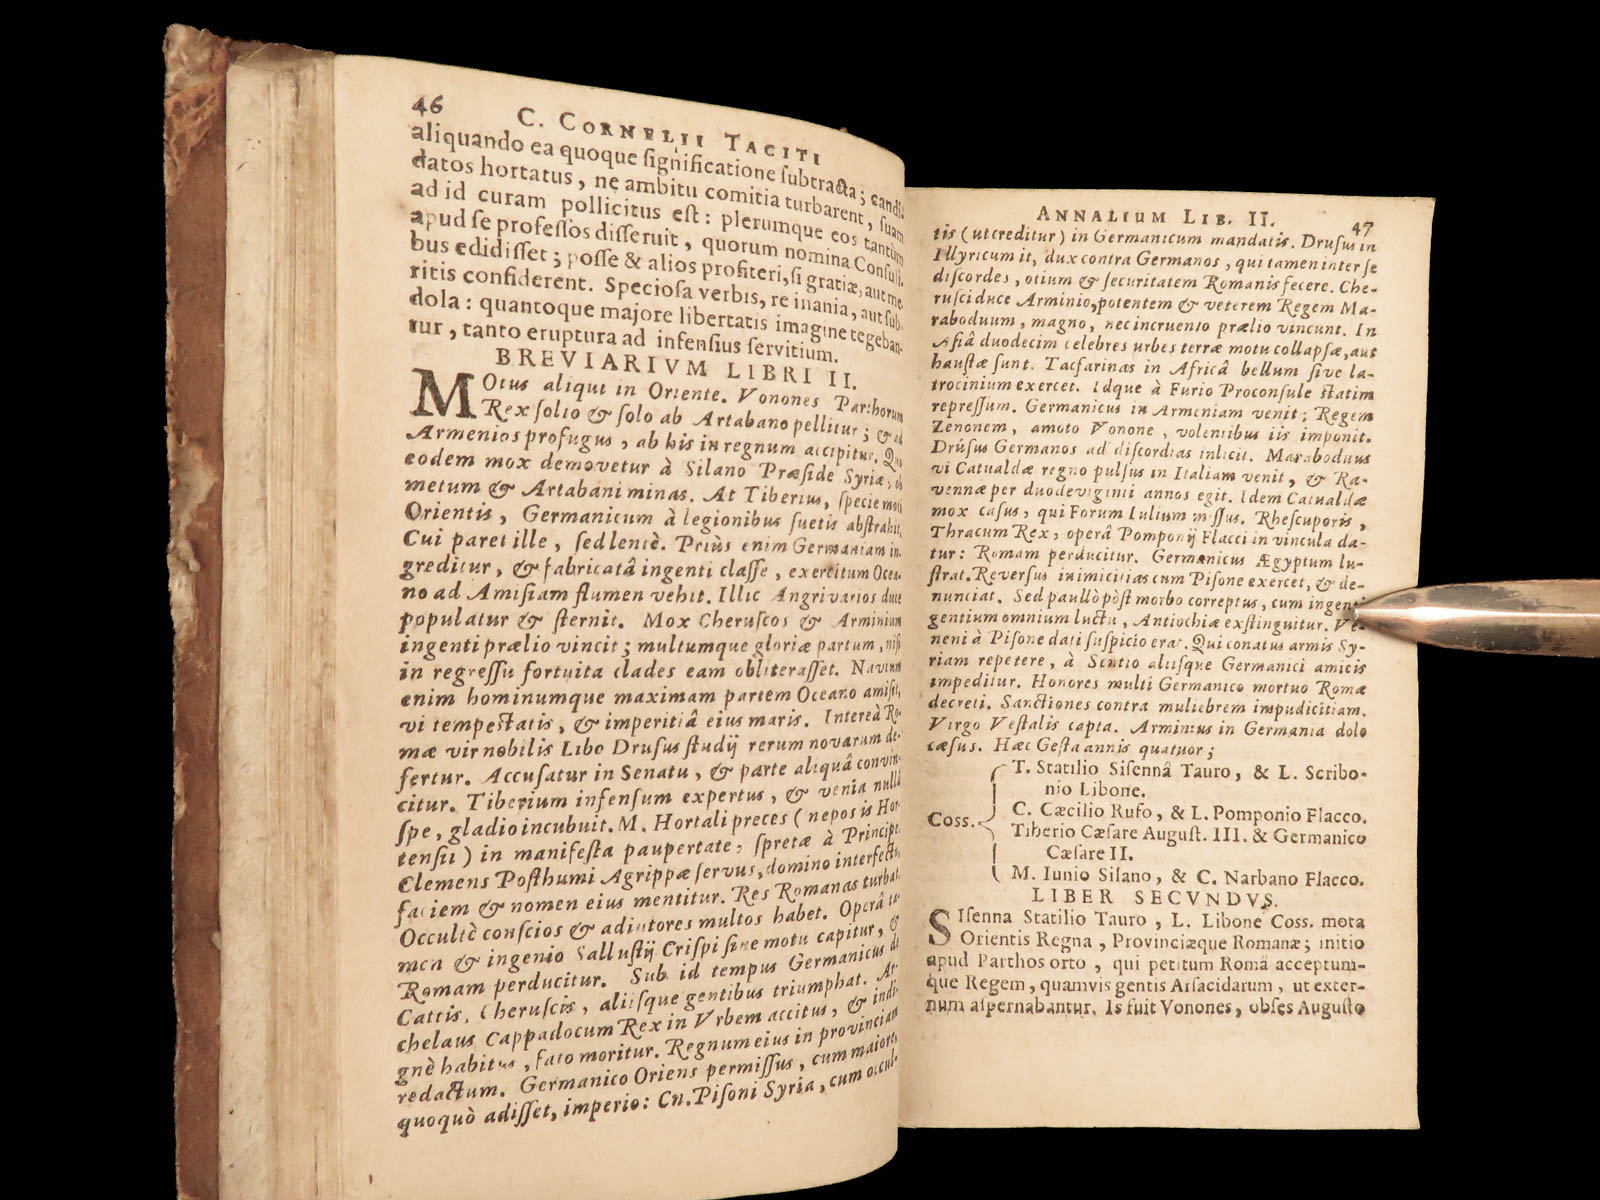 46
C. CORNELII TACITI
aliquando ea quoque ſignificatione ſubtracta; candi-
datos hortatus, ne ambitu comitia turbarent, ſuam
ad id curam pollicitus eſt: plerumque eos tantùm
apud ſe profeſſos diſſeruit, quorum nomina Conſuli-
bus edidiſſet; poſſe & alios profiteri, ſi gratiæ, aut me-
ritis confiderent. Specioſa verbis, re inania, aut ſub-
dola: quantoque majore libertatis imagine tegeban-
tur, tanto eruptura ad infenſius ſervitium.
BREVIARIVM LIBRI II.
MOtus aliqut in Oriente. Vonones Parthorum
Rex ſolio & ſolo ab Artabano pellitur; & ad
Armenios profugus, ab his in regnum accipitur. Quo
eodem mox demovetur à Silano Præſide Syriæ, ob
metum & Artabani minas. At Tiberius, ſpecie moti
Orientis, Germanicum à legionibus ſuetis abſtrahit,
Cui paret ille, ſed lentè. Priùs enim Germaniam in-
greditur, & fabricatâ ingenti claſſe, exercitum Ocea-
no ad Amiſiam flumen vehit. Illic Angrivarios duce
populatur & ſternit. Mox Cheruſcos & Arminium
ingenti prælio vincit; multumque gloriæ partum, niſi
in regreſſu fortuita clades eam obliteraſſet. Navium
enim hominumque maximam partem Oceano amiſit,
vi tempeſtatis, & imperitiâ eius maris. Intereà Ro-
mæ vir nobilis Libo Druſus ſtudij rerum novarum de-
fertur. Accuſatur in Senatu, & parte aliquâ convin-
citur. Tiberium infenſum expertus, & venia nullâ
ſpe, gladio incubuit. M. Hortali preces (nepos is Hor-
tenſii) in manifeſta paupertate, ſpretæ à Principe.
Clemens Poſthumi Agrippæ ſervus, domino interfecto,
faciem & nomen eius mentitur. Res Romanas turbat.
Occultè conſcios & adiutores multos habet. Operâ ta-
men & ingenio Salluſtij Criſpi ſine motu capitur, &
Romam perducitur. Sub id tempus Germanicus de
Cattis, Cheruſcis, aliiſque gentibus triumphat. Ar-
chelaus Cappadocum Rex in Vrbem accitus, & indi-
gnè habitus, fato moritur. Regnum eius in provinciam
redactum. Germanico Oriens permiſſus, cum maiore,
quoquò adiſſet, imperio: Cn. Piſoni Syria, cum occul-
ANNALIUM LIB. II. 47
tis (ut creditur) in Germanicum mandatis. Druſus in
Illyricum it, dux contra Germanos, qui tamen inter ſe
diſcordes, otium & ſecuritatem Romanis fecere. Che-
ruſci duce Arminio, potentem & veterem Regem Ma-
raboduum, magno, nec incruento prælio vincunt. In
Aſiâ duodecim celebres urbes terræ motu collapſæ, aut
hauſtæ ſunt. Tacfarinas in Africâ bellum ſive la-
trocinium exercet. Idque à Furio Proconſule ſtatim
repreſſum. Germanicus in Armeniam venit; Regem
Zenonem, amoto Vonone, volentibus iis imponit.
Drúſus Germanos ad diſcordias inlicit. Maraboduus
vi Catualdæ regno pulſus in Italiam venit, & Ra-
vennæ per duodeviginti annos egit. Idem Catualdæ
mox caſus, qui Forum Iulium miſſus. Rheſcuporis,
Thracum Rex, operâ Pomponij Flacci in vincula da-
tur: Romam perducitur. Germanicus Ægyptum lu-
ſtrat. Reverſus inimicitias cum Piſone exercet, & de-
nunciat. Sed paullò pòſt morbo correptus, cum ingenti
gentium omnium luctu, Antiochiæ exſtinguitur. Ve-
neni à Piſone dati ſuſpicio erat. Qui conatus armis Sy-
riam repetere, à Sentio aliiſque Germanici amicis
impeditur. Honores multi Germanico mortuo Romæ
decreti. Sanctiones contra muliebrem impudicitiam.
Virgo Veſtalis capta. Arminius in Germania dolo
cæſus. Hæc Geſta annis quatuor;
T. Statilio Siſennâ Tauro, & L. Scribo-
nio Libone.
C. Cæcilio Rufo, & L. Pomponio Flacco.
Coss.
Tiberio Cæſare Auguſt. III. & Germanico
Cæſare II.
M. Iunio Silano, & C. Narbano Flacco.
LIBER SECVNDVS.
SIſenna Statilio Tauro, L. Libone Coss. mota
Orientis Regna, Provinciæque Romanæ; initio
apud Parthos orto, qui petitum Româ acceptum-
que Regem, quamvis gentis Arſacidarum, ut exter-
num aſpernabantur. Is fuit Vonones, obſes Auguſto